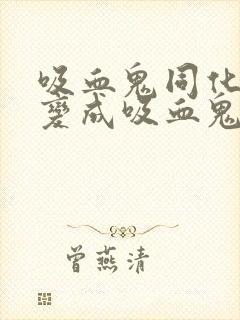 吸血鬼同化
变成吸血鬼
曾燕清